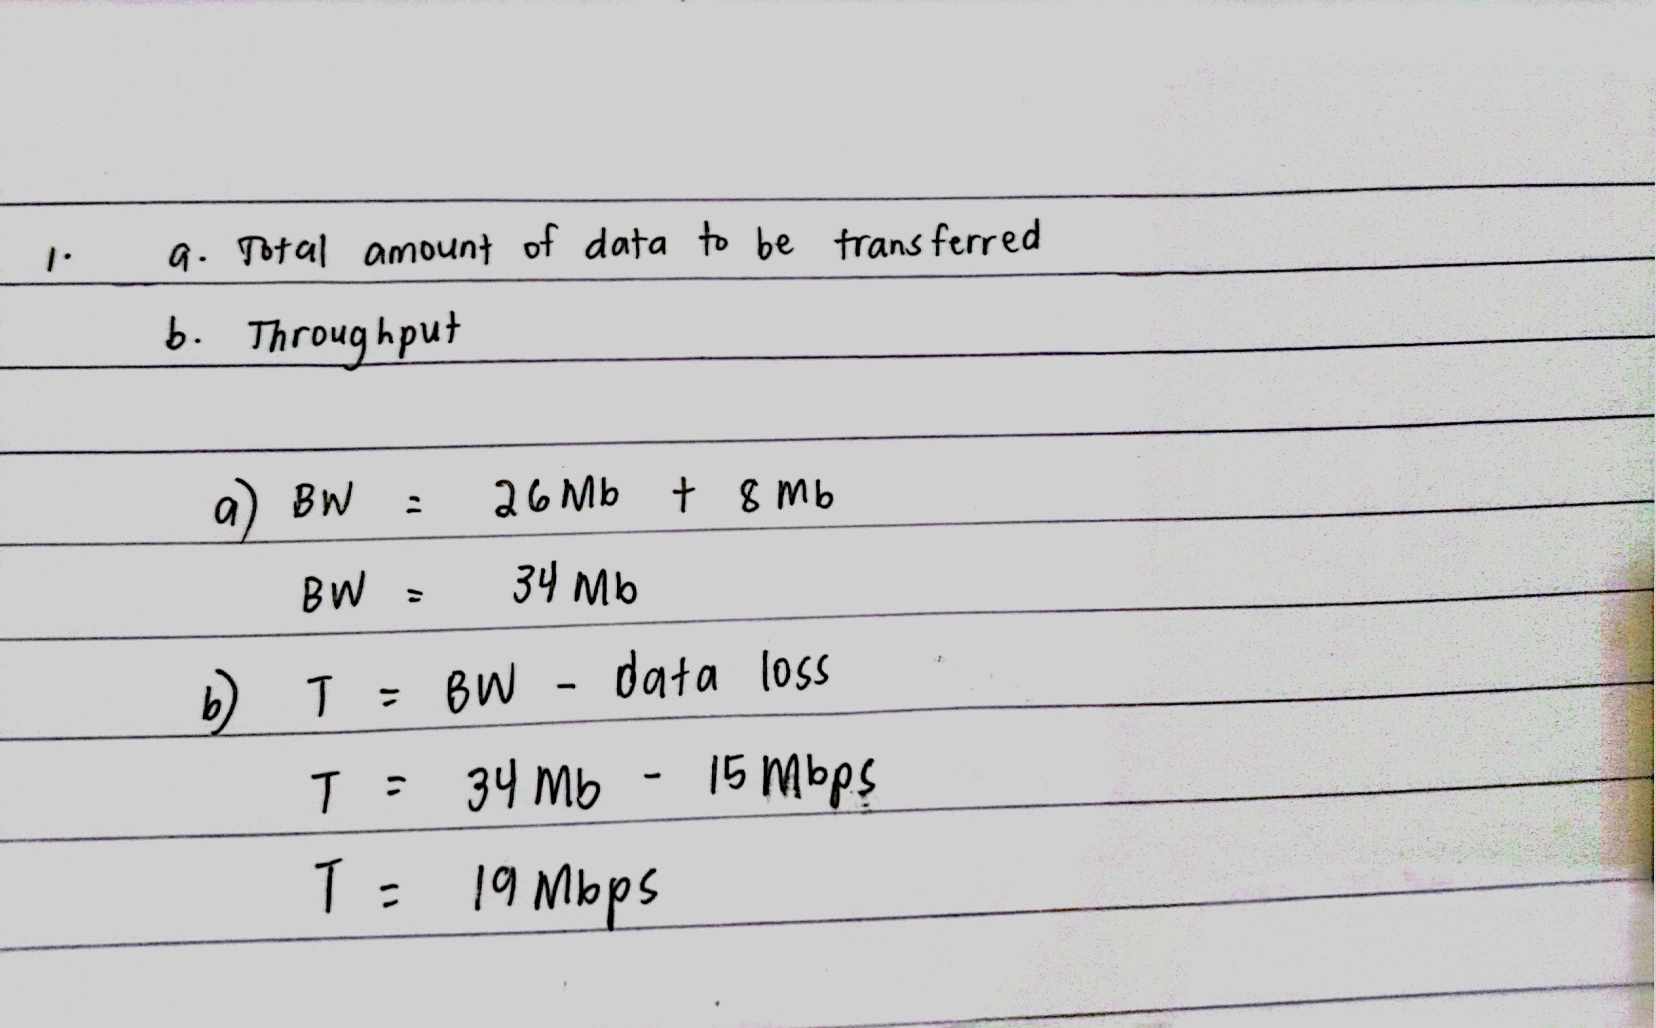 1. a. Total amount of data to be transferred
b. Throughput
a) BW = 26 Mb + 8 Mb
BW = 34 Mb
b) T = BW - data loss
T = 34 Mb - 15 Mbps
T = 19 Mbps